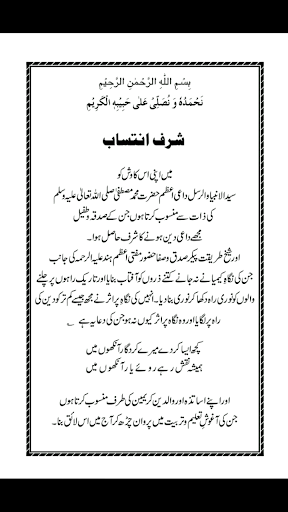 بِسْمِ اللّٰهِ الرَّحْمٰنِ الرَّحِيْمِ
نَحْمَدُهٗ وَ نُصَلِّیْ عَلٰی حَبِيْبِهِ الْكَرِيْمِ
شرف انتساب
میں اپنی اس کاوش کو
سید الانبیاء والرسل داعی اعظم حضرت محمد مصطفیٰ صلی اللہ تعالیٰ علیہ وسلم
کی ذات سے منسوب کرتا ہوں جن کے صدقہ و طفیل
مجھے داعی دین ہونے کا شرف حاصل ہوا۔
اور شیخ طریقت پیکر صدق و صفا حضور مفتی اعظم ہند علیہ الرحمہ کی جانب
جن کی نگاہ کیمیا نے نہ جانے کتنے ذروں کو آفتاب بنایا اور تاریک راہوں پر چلنے
والوں کو نوری راہ دکھا کر نوری بنا دیا۔ انہیں کی نگاہ پر اثر نے مجھ جیسے کم تر کو دین کی
راہ پر لگایا اور وہ نگاہ پر اثر کیوں نہ ہو جن کی دعا یہ ہے
کچھ ایسا کر دے میرے کردگار آنکھوں میں
ہمیشہ نقش رہے روئے یار آنکھوں میں
اور اپنے اساتذہ اور والدین کریمین کی طرف منسوب کرتا ہوں
جن کی آغوش تعلیم و تربیت میں پروان چڑھ کر آج میں اس لائق بنا۔